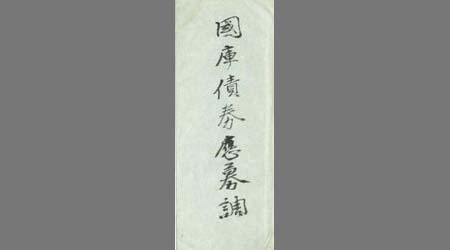 國庫債券應募調